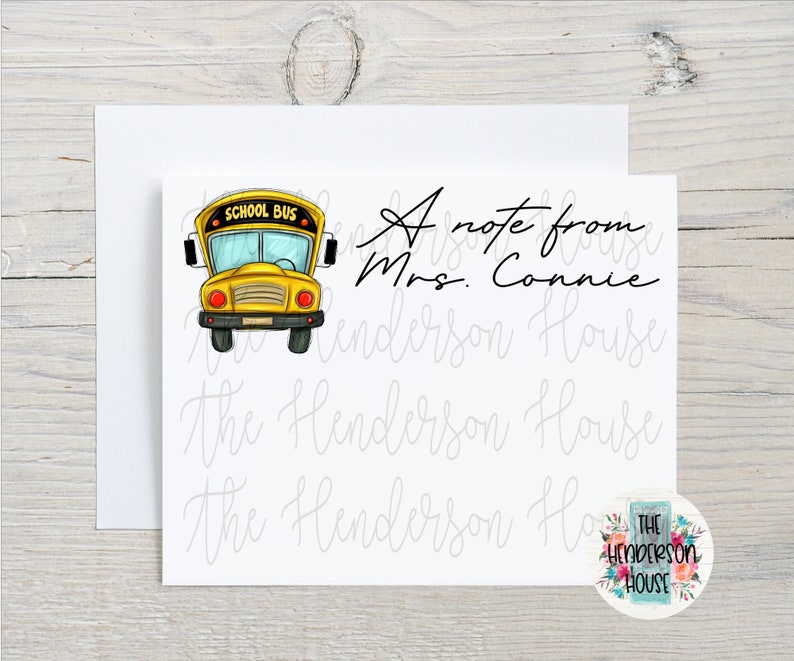 SCHOOL BUS
A note from
Mrs. Connie
the Henderson House
the Henderson House
the Henderson House
the Henderson House
THE
HENDERSON
HOUSE